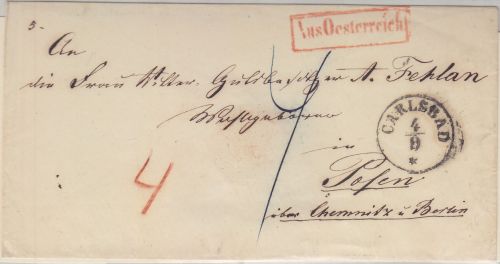 5.
Aus Oesterreich
An
die Frau Ritter-Gutsbesitzer A. Fehlan
Wohlgeboren
CARLSBAD
4/9
*
in
4
Posen
über Chemnitz u Berlin